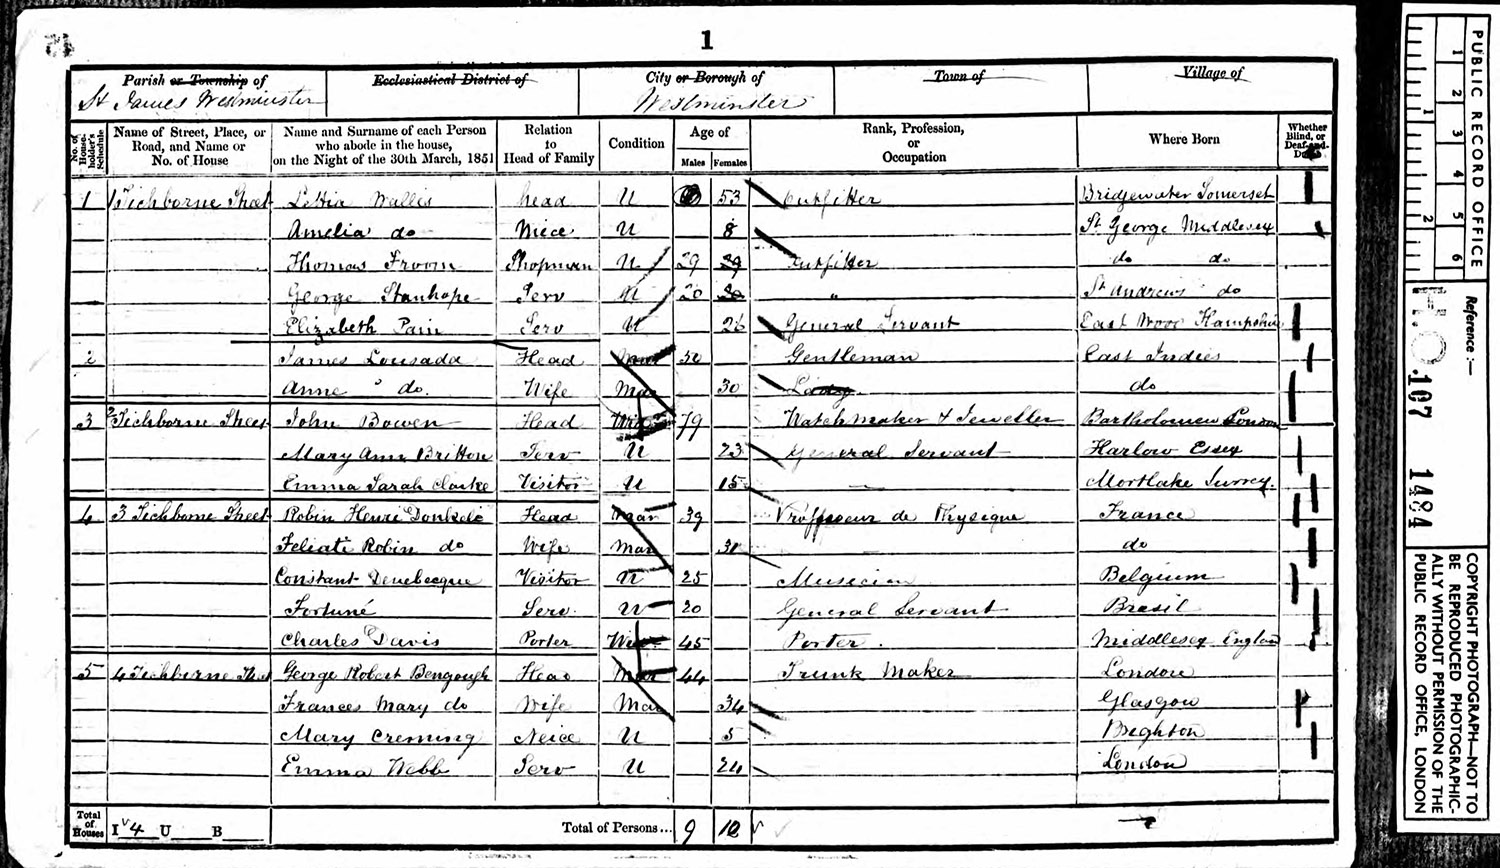 1
Parish or Township of
Ecclesiastical District of
City or Borough of
Town of
Village of
St James Westminster
Westminster
No. of Householder's Schedule
Name of Street, Place, or Road, and Name or No. of House
Name and Surname of each Person who abode in the house, on the Night of the 30th March, 1851
Relation to Head of Family
Condition
Age of
Males Females
Rank, Profession, or Occupation
Where Born
Whether Blind, or Deaf-and-Dumb
1 1 Tichborne Street Lettia Wallis head U 53 Outfitter Bridgewater Somerset
Amelia do Niece U 8 St George Middlesex
Thomas Froom Shopman U 29 29 Outfitter do do
George Stanhope Serv U 20 20 " St Andrews do
Elizabeth Pain Serv U 26 General Servant East Hampshire
2 James Lousada Head Mar 30 Gentleman East Indies
Anne do. Wife Mar 30 Lady do
3 2 Tichborne Street John Bowen Head 79 Watchmaker & Jeweller Bartholomew London
Mary Ann Britton Serv U 23 General Servant Harlow Essex
Emma Sarah Clarke Visitor U 15 Mortlake Surrey.
4 3 Tichborne Street Robin Henri Head Mar 39 Proffeseur de Physique France
Robin do Wife Mar 31 do
Constant Visitor U 25 Musician Belgium
Fortuné Serv. U 20 General Servant Bresil
Charles Davis Porter 45 Porter. Middlesex England
5 4 Tichborne Street George Robert Bengough Head Mar 44 Trunk Maker London
Frances Mary do Wife Mar 34 Glasgow
Mary Creming Neice U 5 Brighton
Emma Webb Serv U 24 London
Total of Houses I 4 U B
Total of Persons... 9 10
PUBLIC RECORD OFFICE
1 2 3 4 5 6
1 2
Reference:—
H.O. 107 1484
COPYRIGHT PHOTOGRAPH—NOT TO
BE REPRODUCED PHOTOGRAPHIC-
ALLY WITHOUT PERMISSION OF THE
PUBLIC RECORD OFFICE, LONDON